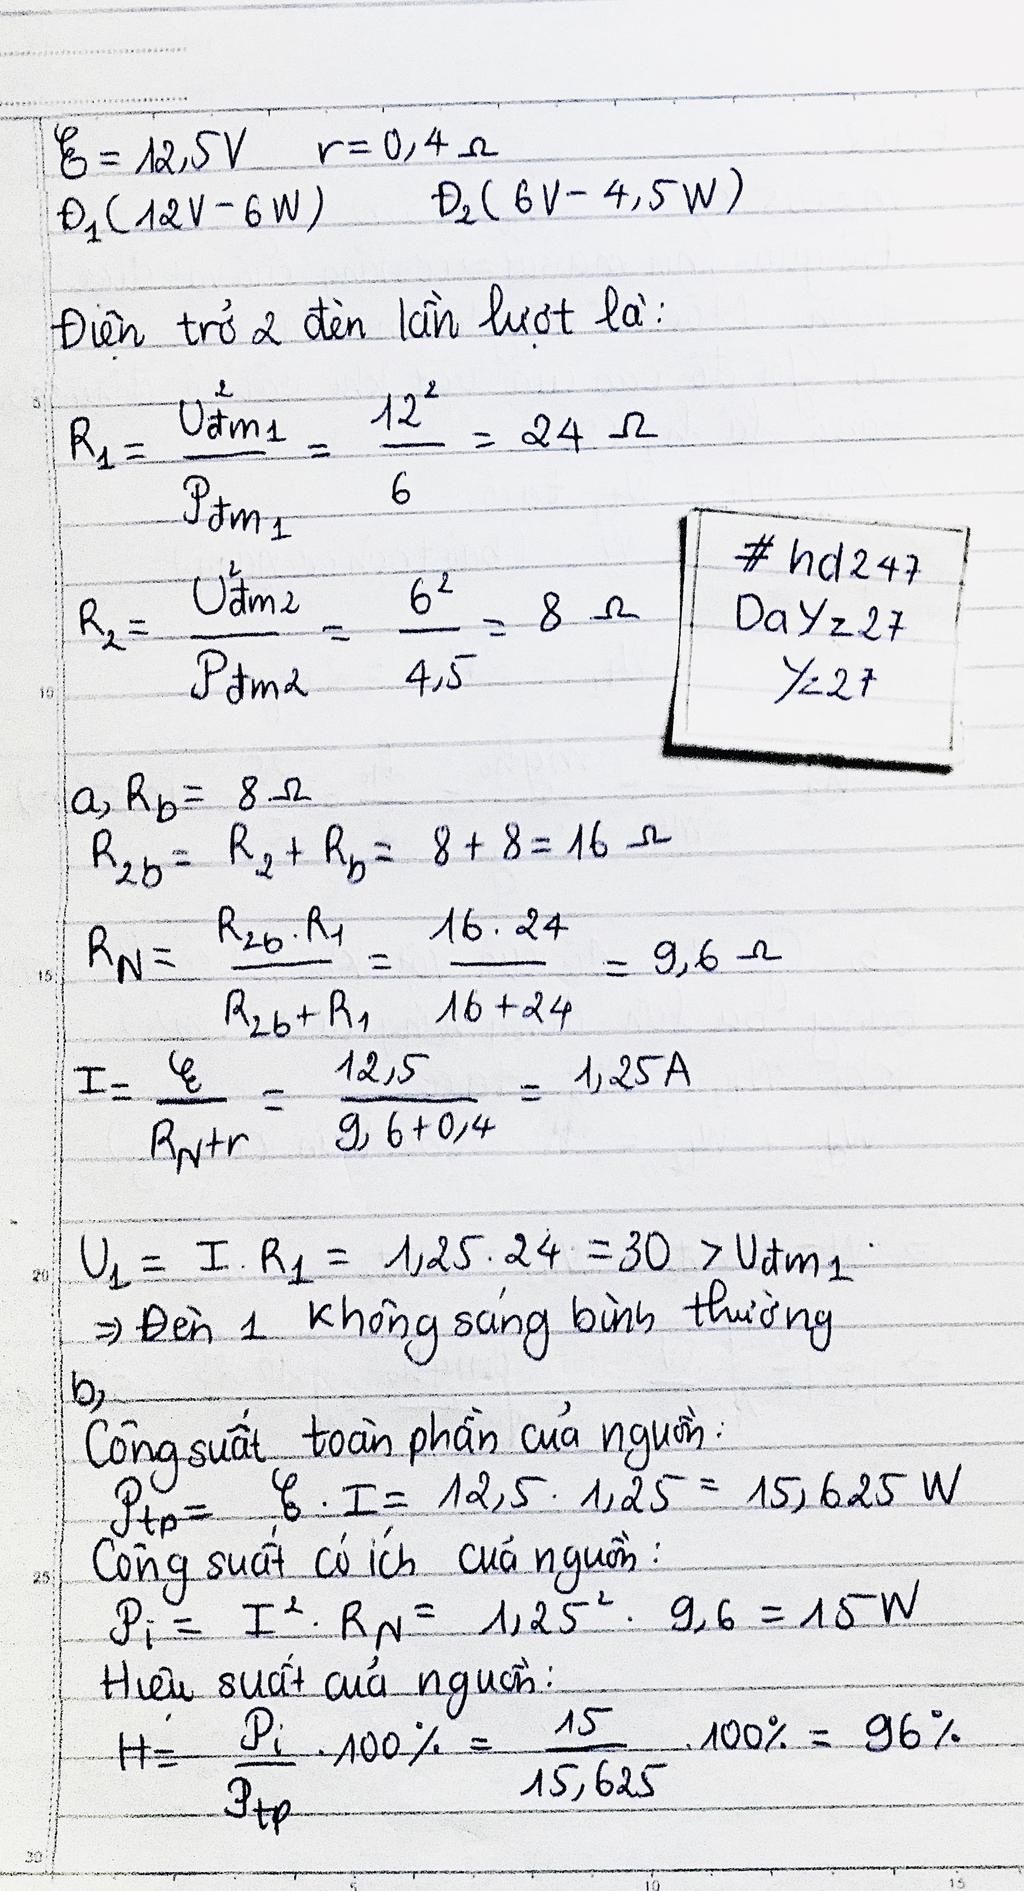 ℰ = 12,5V r = 0,4 Ω
Đ₁ (12V - 6W) Đ₂ (6V - 4,5W)
Điện trở 2 đèn lần lượt là:
R₁ = U²đm1 / Pđm1 = 12² / 6 = 24 Ω
R₂ = U²đm2 / Pđm2 = 6² / 4,5 = 8 Ω
#hd247
DaYz27
Yz27
a, R_b = 8 Ω
R_2b = R₂ + R_b = 8 + 8 = 16 Ω
R_N = R_2b . R₁ / R_2b + R₁ = 16 . 24 / 16 + 24 = 9,6 Ω
I = ℰ / R_N + r = 12,5 / 9,6 + 0,4 = 1,25A
U₁ = I . R₁ = 1,25 . 24 = 30 > Uđm1
⇒ Đèn 1 không sáng bình thường
b,
Công suất toàn phần của nguồn:
P_tp = ℰ . I = 12,5 . 1,25 = 15,625 W
Công suất có ích của nguồn:
P_i = I² . R_N = 1,25² . 9,6 = 15 W
Hiệu suất của nguồn:
H = P_i / P_tp . 100% = 15 / 15,625 . 100% = 96%
5
10
15
20
25
30
5 10 15